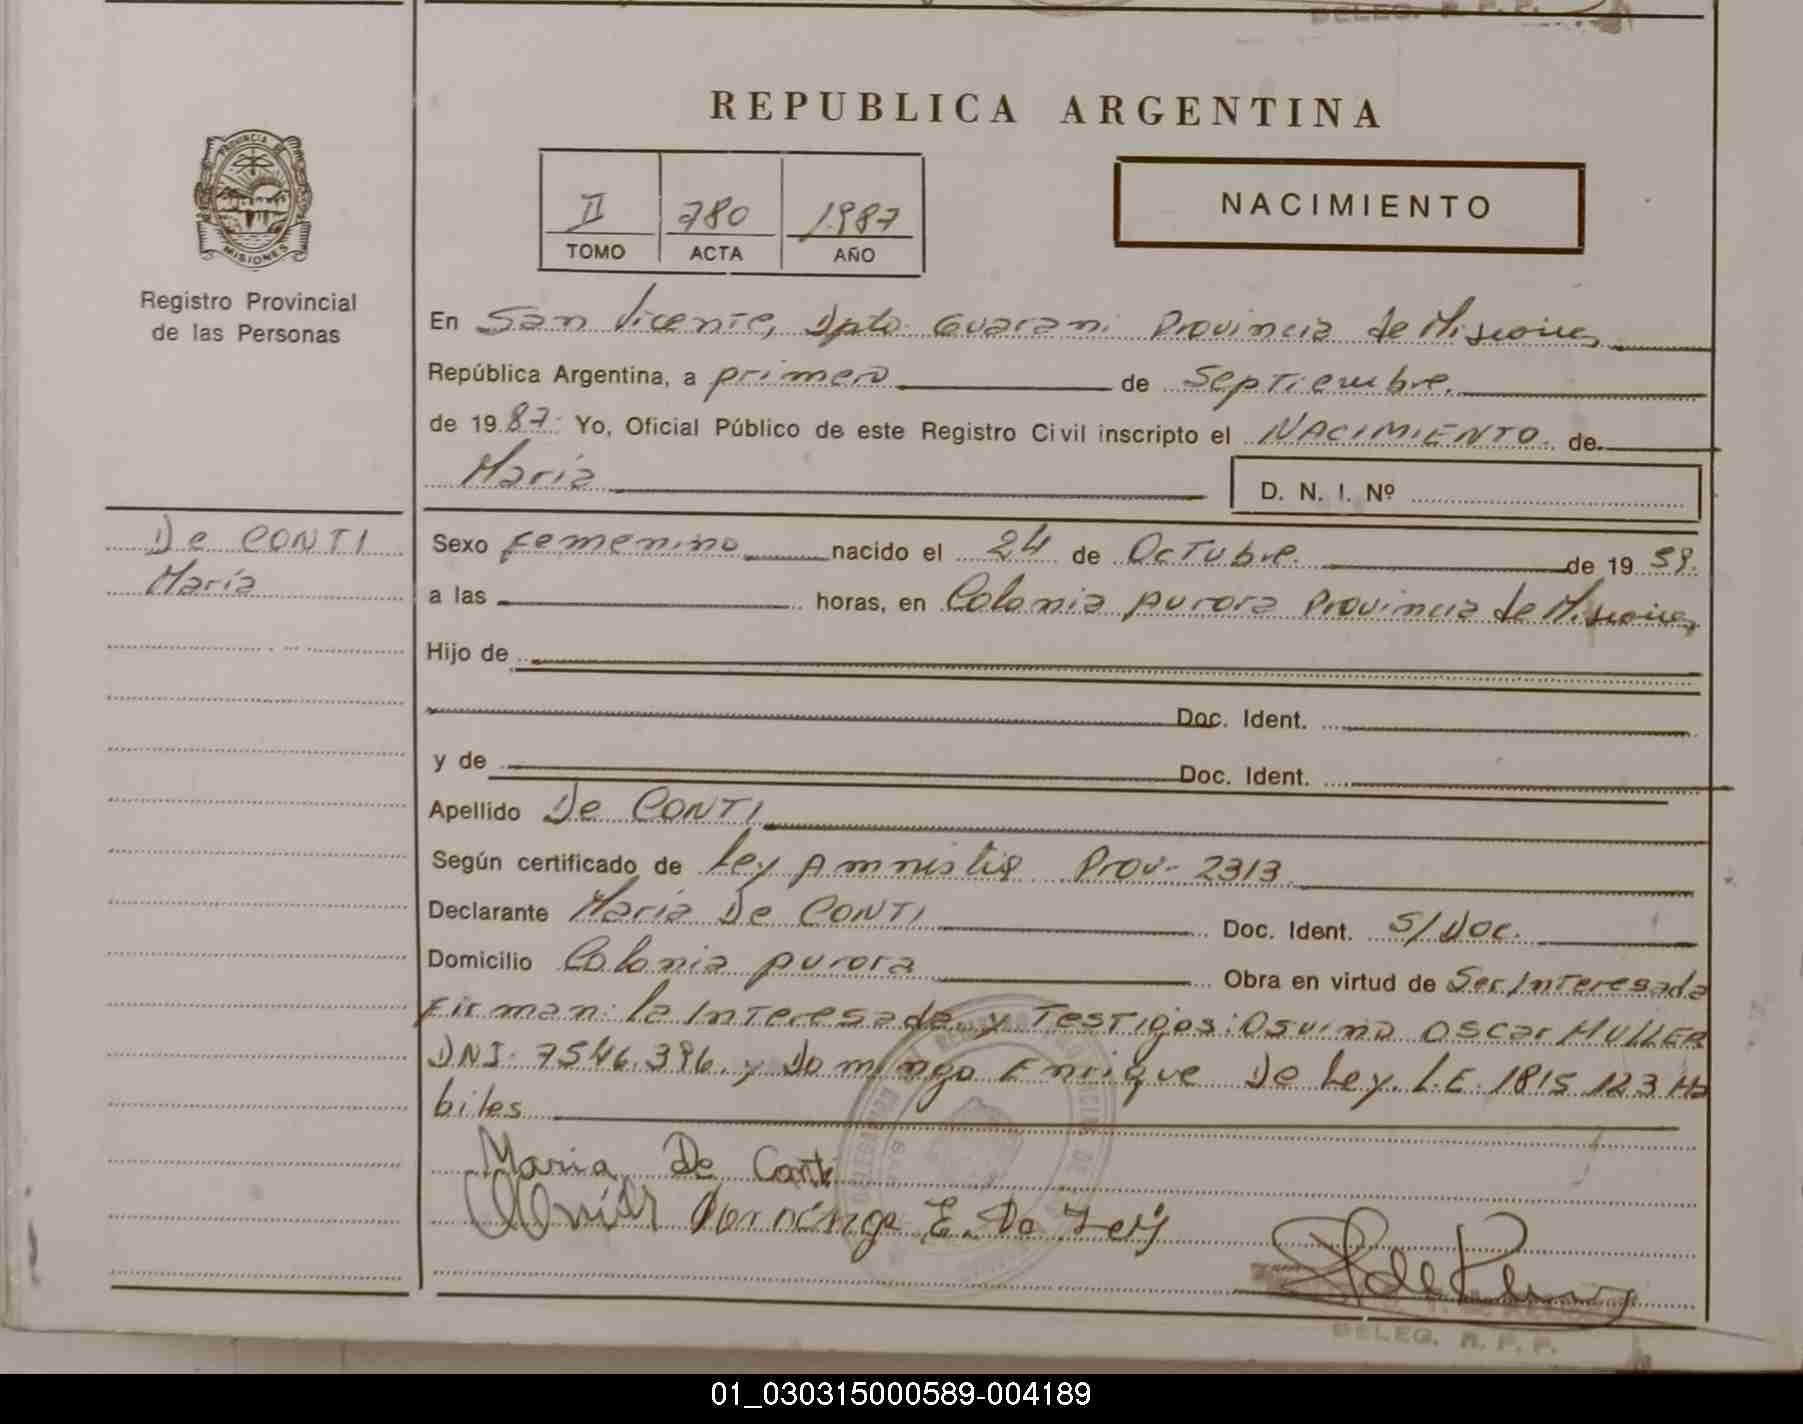 DELEG. R. P. P.
REPUBLICA ARGENTINA
PROVINCIA DE
MISIONES
Registro Provincial
de las Personas
II 780 1987
TOMO ACTA AÑO
NACIMIENTO
En San Vicente, Dpto. Guarani Provincia de Misiones
República Argentina, a primero de Septiembre.
de 1987. Yo, Oficial Público de este Registro Civil inscripto el NACIMIENTO. de
María D. N. I. Nº
De CONTI
María
Sexo femenino nacido el 24 de Octubre. de 1959.
a las horas, en Colonia Aurora Provincia de Misiones,
Hijo de
Doc. Ident.
y de Doc. Ident.
Apellido De CONTI
Según certificado de Ley Amnistia Prov- 2313
Declarante María De CONTI Doc. Ident. S/DOC.
Domicilio Colonia Aurora Obra en virtud de Ser Interesada
Firman: la Interesada y Testigos: Osvino Oscar MULLER
DNI. 7546.396. y Domingo Enrique De Ley. L.E. 1815 123 Ha
biles
Maria De Conti
Domingo E. De Ley
DELEG. R. P. P.
01_030315000589-004189